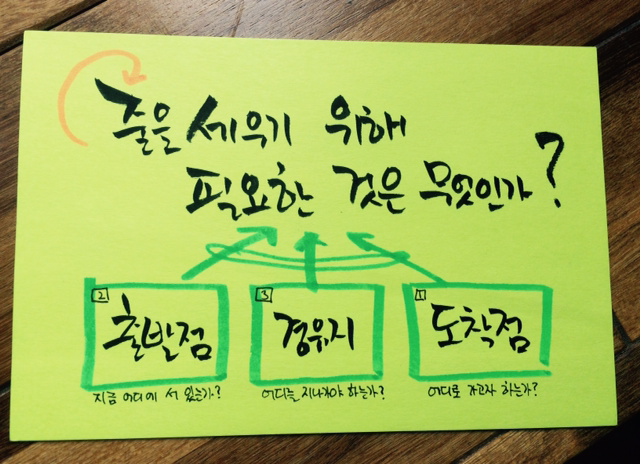 줄을 세우기 위해
필요한 것은 무엇인가?
2
출발점
지금 어디에 서 있는가?
3
경유지
어디를 지나가야 하는가?
1
도착점
어디로 가고자 하는가?